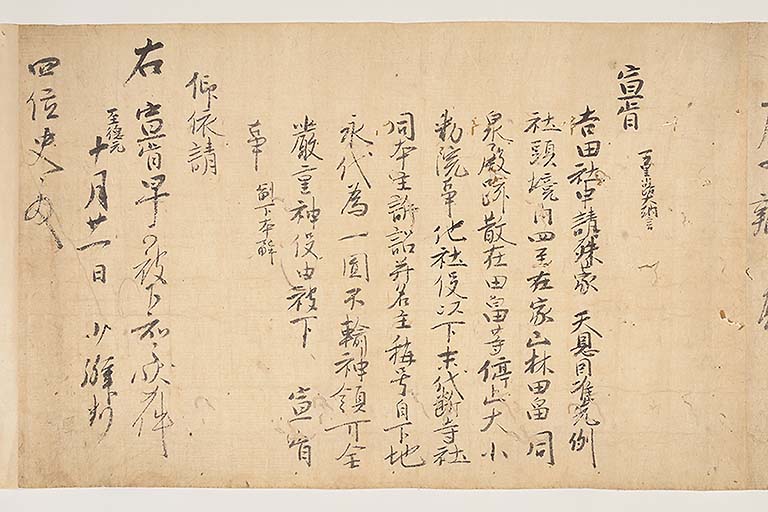 宣旨
吉田社申請殊蒙　天恩因准先例
社頭境内四至在家山林田畠同
泉殿跡散在田畠等停止大小
勅院事他社役以下末代断寺社
同本主訴詔并名主称号自下地
永代為一圓不輸神領可全
嚴重神役由被下　宣旨
事　副下本解
仰依請
右　宣旨早可被下知之状如件
至徳元
十月廿一日　少辨判
四位史